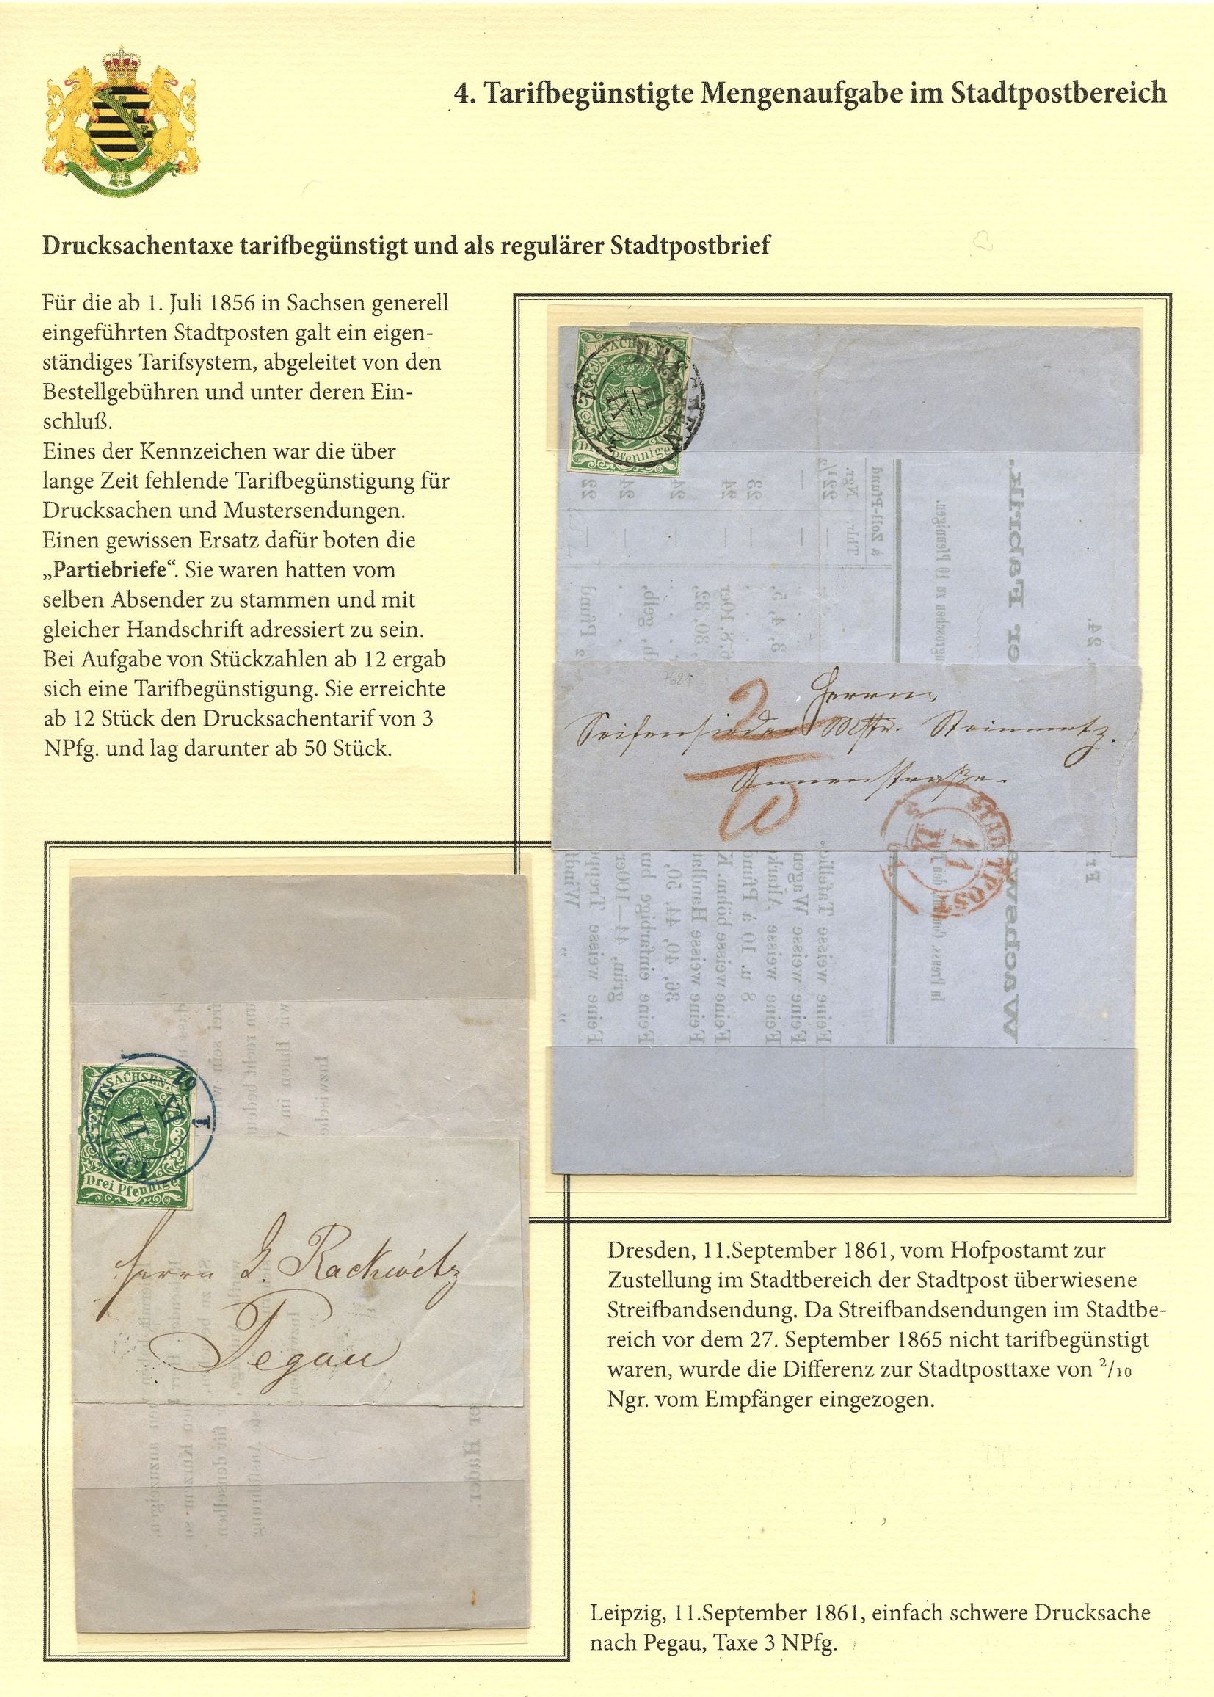 4. Tarifbegünstigte Mengenaufgabe im Stadtpostbereich
Drucksachentaxe tarifbegünstigt und als regulärer Stadtpostbrief
Für die ab 1. Juli 1856 in Sachsen generell
eingeführten Stadtposten galt ein eigen-
ständiges Tarifsystem, abgeleitet von den
Bestellgebühren und unter deren Ein-
schluß.
Eines der Kennzeichen war die über
lange Zeit fehlende Tarifbegünstigung für
Drucksachen und Mustersendungen.
Einen gewissen Ersatz dafür boten die
„Partiebriefe“. Sie waren hatten vom
selben Absender zu stammen und mit
gleicher Handschrift adressiert zu sein.
Bei Aufgabe von Stückzahlen ab 12 ergab
sich eine Tarifbegünstigung. Sie erreichte
ab 12 Stück den Drucksachentarif von 3
NPfg. und lag darunter ab 50 Stück.
SACHSEN
Drei Pfennige
Herrn
Seifensieder Mstr. Steinmetz.
Annenstraße.
2/10
STADTPOST
11
IX
Feine weisse
grün, 41—100er
Feine einfarbige
36, 40, 41, 50,
Feine weisse
Feine weisse böhm.
8 u. 10 à Pfund
Feine weisse
Feine weisse Wagen
Feine weisse
à Zoll-Pfund
Thlr. Ngr.
SACHSEN
Drei Pfennige
LEIPZIG
11
IX
Herrn J. Rackwitz
Pegau
Dresden, 11.September 1861, vom Hofpostamt zur
Zustellung im Stadtbereich der Stadtpost überwiesene
Streifbandsendung. Da Streifbandsendungen im Stadtbe-
reich vor dem 27. September 1865 nicht tarifbegünstigt
waren, wurde die Differenz zur Stadtposttaxe von 2/10
Ngr. vom Empfänger eingezogen.
Leipzig, 11.September 1861, einfach schwere Drucksache
nach Pegau, Taxe 3 NPfg.